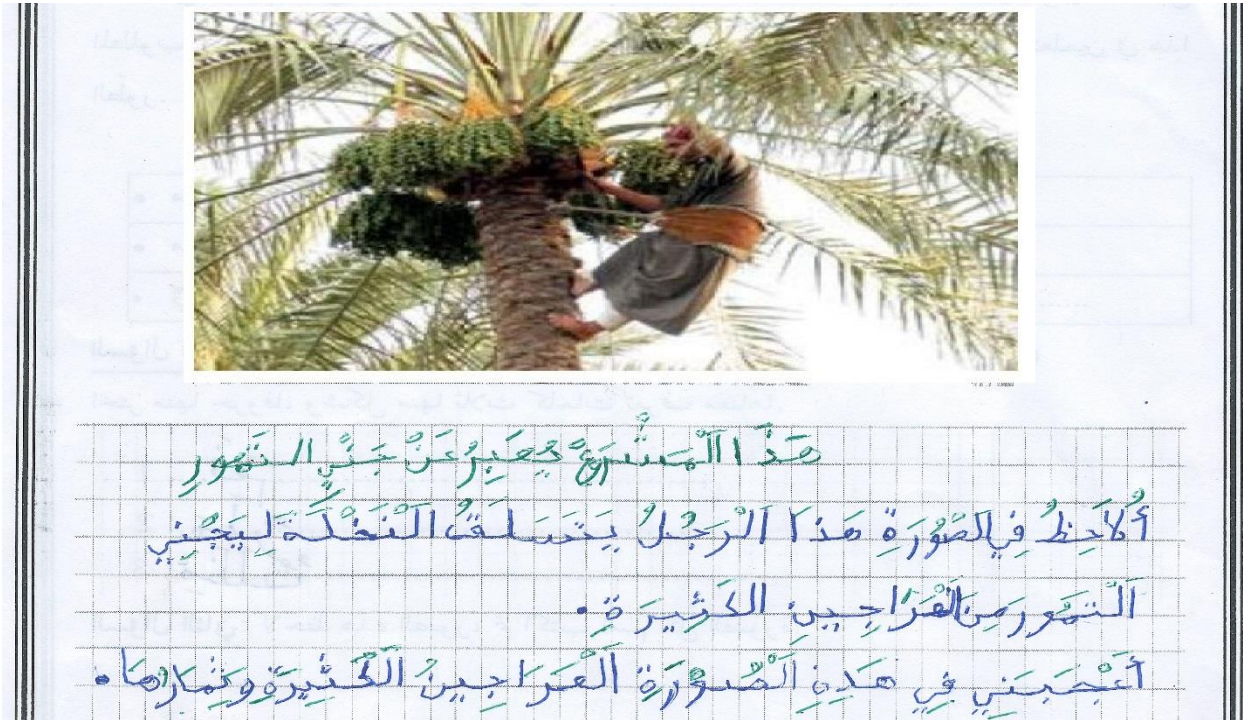 هَذَا الْمَشْرَعُ يُعَبِرُ عَنْ جَنْيِ التمُورِ
أُلاَحِظُ فِي الصُّوُرَةِ هَذَا اَلْرَجُلُ يَتَسَلَقُ اَلْنَخْلَةَ لِيَجْنِي
اَلْتمُورَ مِنَ الْعَرَاجِينِ الكَثِيرَةِ.
أَعْجَبَتنِي فِي هَذِهِ اَلْصُوُرَةِ اَلْعَرَاجِينُ اَلْكَثِيرَةُ وَثِمَارُهَا.